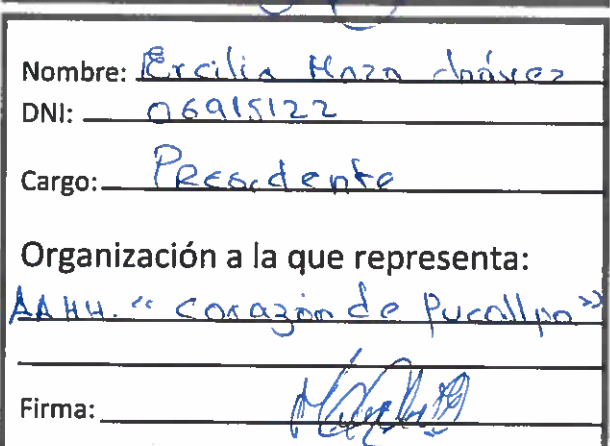 Nombre: Ercilia Maza chávez
DNI: 06915122
Cargo: Presidente
Organización a la que representa:
AAHH. "Corazón de Pucallpa"
Firma: